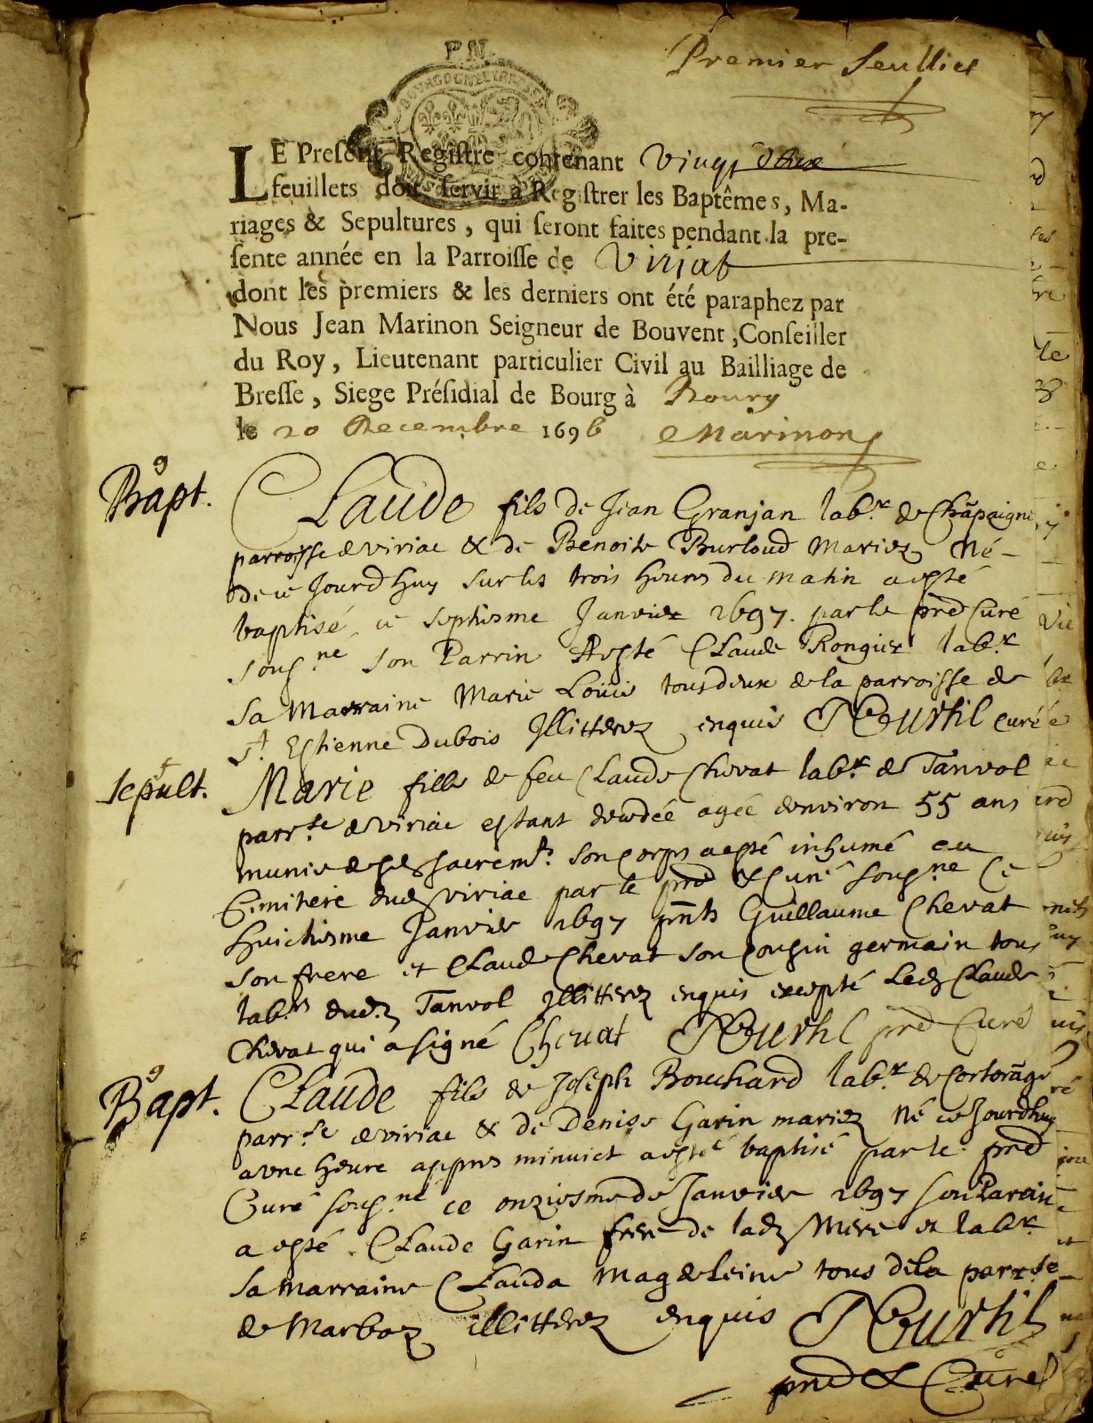 P.N.
Premier feuillet
LE Preſent Regiſtre contenant Vingt deux
feuillets doit ſervir à Regiſtrer les Baptêmes, Ma-
riages & Sepultures, qui ſeront faites pendant la pre-
ſente année en la Parroiſſe de Viriat
dont les premiers & les derniers ont été paraphez par
Nous Jean Marinon Seigneur de Bouvent, Conſeiller
du Roy, Lieutenant particulier Civil au Bailliage de
Breſſe, Siege Préſidial de Bourg à Bourg
le 20 Decembre 1696 Marinon
Bapt.
CLaude fils de Jean Granjan lab.r de Chãpaigne
parroisse de viriac & de Benoite Burloud mariez Né
de ce Jourdhuy sur les trois heures du matin a esté
baptisé ce septiesme Janvier 1697. par le pnd Curé
soug.ne son Parrin A esté CLaude Rongier lab.r
sa Marraine Marie Loüis tous deux de la parroisse de
St Estienne Dubois Jllitterez enquis NCurtil curé
sepult.
Marie fille de feu CLaude Chevat lab.r de Tanvol
parr.se de viriac estant decedée agée denviron 55 ans
munie de ses sacrem.ts son corps a esté inhumé au
Cimitiere dud viriac par le pnd & Curé soug.ne Ce
huictiesme Janvier 1697 pnts Guillaume Chevat
son frere et CLaude Chevat son cousin germain tous
lab.rs dud. Tanvol Jllitterez enquis excepté Led CLaude
Chevat qui a signé Chevat NCurtil pnd Curé
Bapt.
CLaude fils de Joseph Bouchard lab.r de Cortorãge
parr.se de viriac & de Denise Garin mariez né ce Jourdhuy
a une heure appres minuict a esté baptisé par le pnd
Curé soug.ne ce onziesme de Janvier 1697 son Parain
a esté CLaude Garin frere de lad Mere et lab.r
sa marraine CLauda Magdeleine tous dela parr.se
de Marboz illitterez enquis NCurtil
pnd & Curé